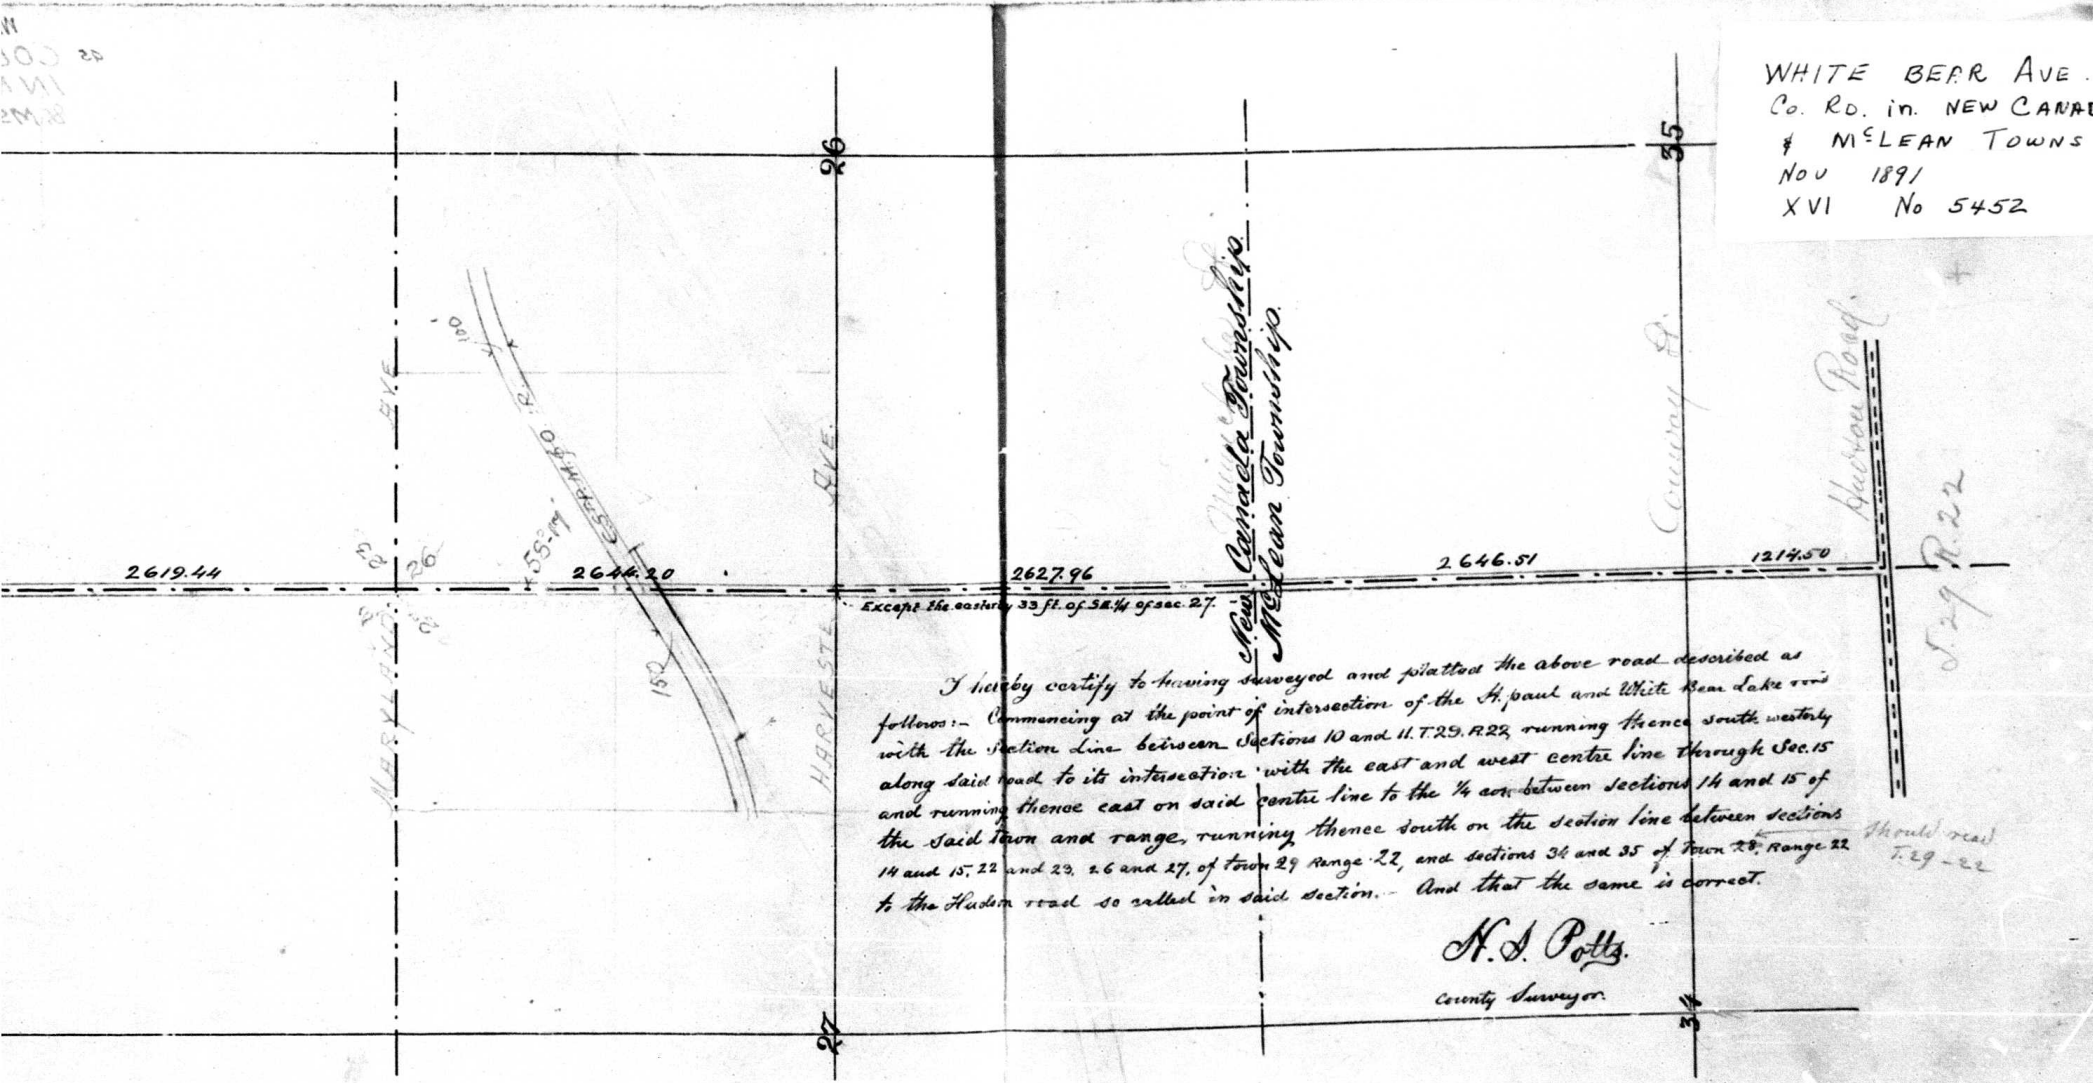 WHITE BEAR AVE.
Co. RD. in. NEW CANAD
& McLEAN TOWNS
NOV 1891
XVI No 5452
26
35
100'
AVE
C.ST.P.M.&O. R.
AVE.
New Canada Township.
McLean Township.
Conway St.
Hudson Road.
T. 29 R. 22
23
26
2619.44
2644.20
2627.96
2646.51
1214.50
Except the easterly 33 ft. of S.E. 1/4 of sec. 27.
150
MARYLAND
HARVESTE
I hereby certify to having surveyed and platted the above road described as
follows:- Commencing at the point of intersection of the St. paul and White Bear Lake road
with the Section Line between Sections 10 and 11. T.29. R.22, running thence south westerly
along said road to its intersection with the east and west centre line through Sec. 15
and running thence east on said centre line to the 1/4 cor. between sections 14 and 15 of
the said town and range, running thence south on the section line between sections
14 and 15, 22 and 23, 26 and 27, of town 29 Range 22, and sections 34 and 35 of town 28, Range 22
to the Hudson road so called in said section. - And that the same is correct.
Should read
T. 29 - 22
H. S. Potts.
County Surveyor.
27
34